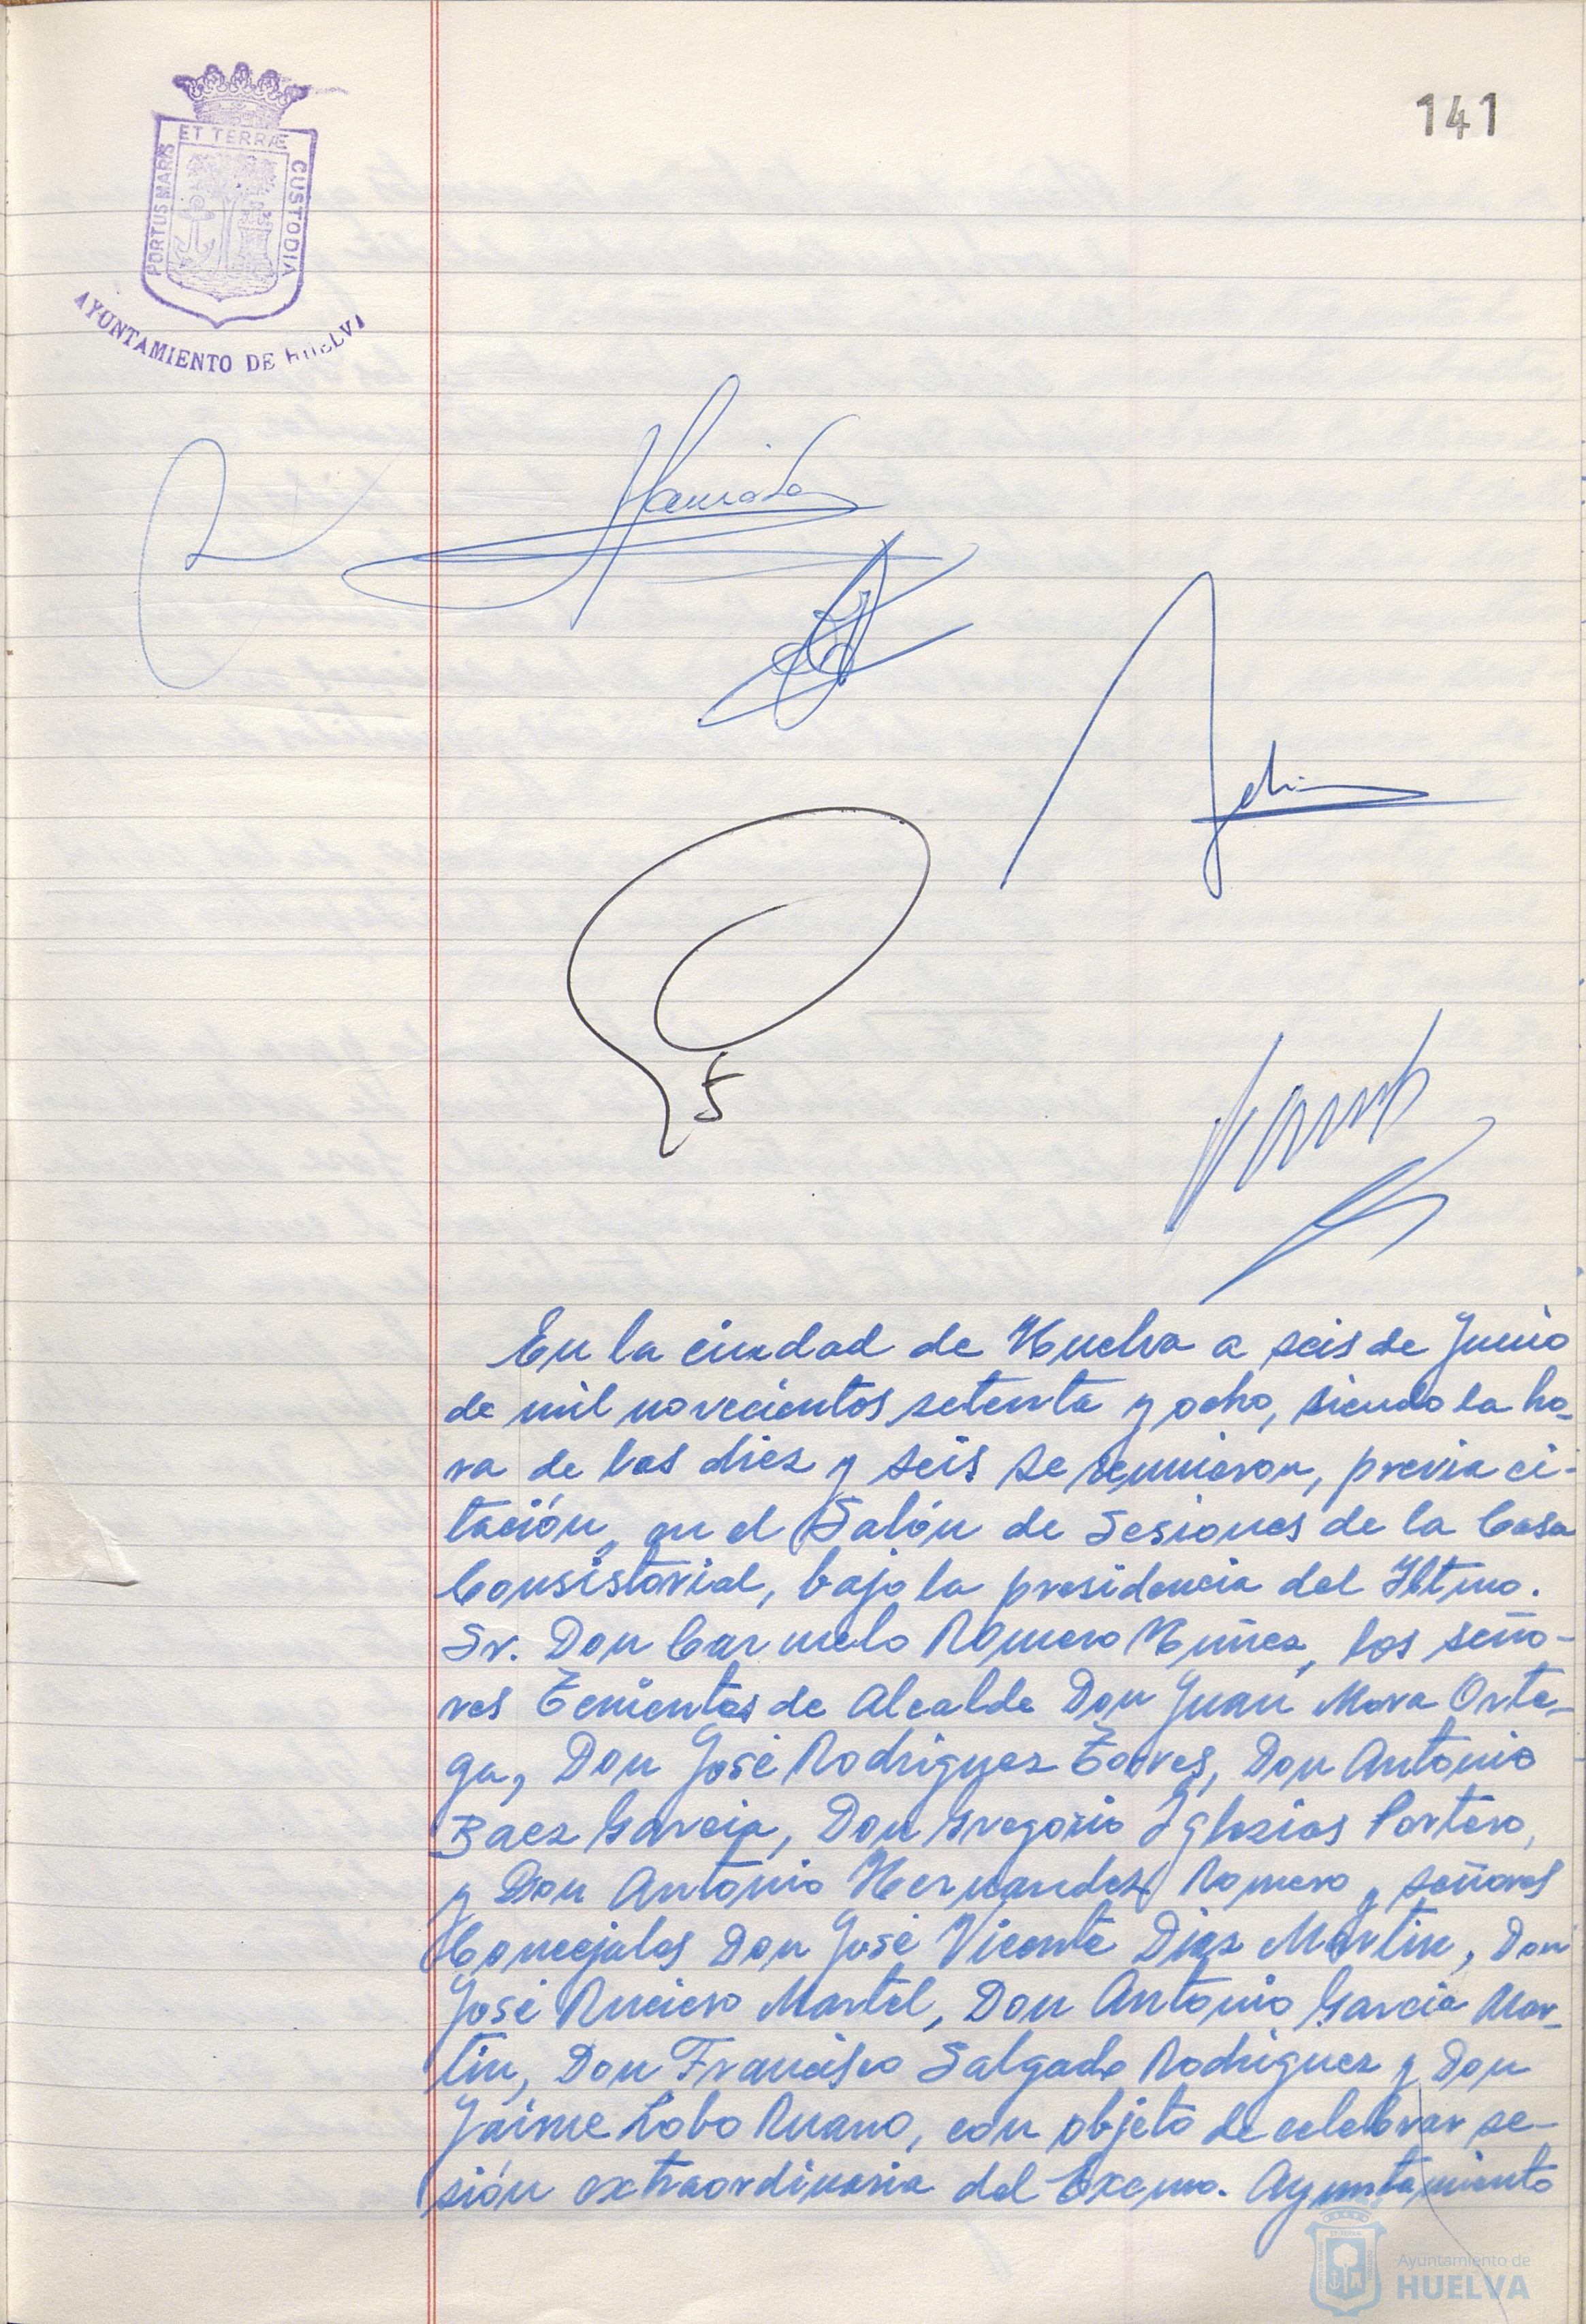 141
ET TERRÆ
PORTUS MARIS
CUSTODIA
AYUNTAMIENTO DE HUELVA
En la ciudad de Huelva a seis de Junio
de mil novecientos setenta y ocho, siendo la ho-
ra de las diez y seis se reunieron, previa ci-
tación, en el Salón de Sesiones de la Casa
Consistorial, bajo la presidencia del Iltmo.
Sr. Don Carmelo Romero Núñez, los seño-
res Tenientes de Alcalde Don Juan Mora Orte-
ga, Don José Rodriguez Torres, Don Antonio
Baez Garcia, Don Gregorio Iglesias Portero,
y Don Antonio Hernandez Romero y señores
Concejales Don José Vicente Diaz Martin, Don
José Ruciero Martel, Don Antonio Garcia Mar-
tin, Don Francisco Salgado Rodriguez y Don
Jaime Lobo Ruano, con objeto de celebrar se-
sión extraordinaria del Excmo. Ayuntamiento
Ayuntamiento de
HUELVA